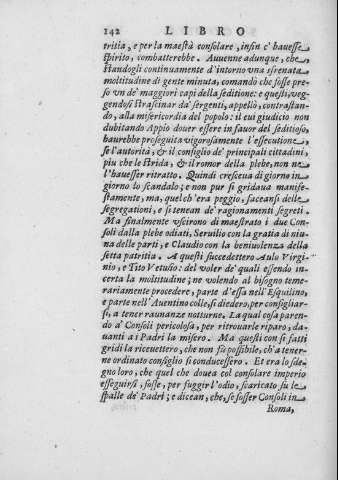 142 LIBRO
tritia, e per la maestà consolare, insin c' hauesse
spirito, combatterebbe. Auuenne adunque, che
standogli continuamente d'intorno vna sfrenata
moltitudine di gente minuta, comandò che fosse pre
so vn de' maggiori capi della seditione: e questi, veg
gendosi strascinar da' sergenti, appellò, contrastan-
do, alla misericordia del popolo: il cui giudicio non
dubitando Appio douer essere in fauor del seditioso,
haurebbe proseguita vigorosamente l'essecutione,
se l'autorità, & il consiglio de' principali cittadini,
più che le strida, & il romor della plebe, non ne
l'hauesser ritratto. Quindi cresceua di giorno in
giorno lo scandalo; e non pur si gridaua manife-
stamente, ma, quel ch'era peggio, faceansi delle
segregationi, e si tenean de' ragionamenti segreti.
Ma finalmente vscirono di maestrato i due Con-
soli dalla plebe odiati, Seruilio con la gratia di niu-
na delle parti, e Claudio con la beniuolenza della
setta patritia. A questi succedettero Aulo Virgi-
nio, e Tito Vetusio: del voler de' quali essendo in-
certa la moltitudine; ne volendo al bisogno teme-
rariamente procedere, parte d'essa nell' Esquilino,
e parte nell' Auentino colle, si diedero, per consigliar-
si, a tener raunanze notturne. La qual cosa paren-
do a' Consoli pericolosa, per ritrouarle riparo, da-
uanti a i Padri la misero. Ma questi con sì fatti
gridi la riceuettero, che non fù possibile, ch' a tener-
ne ordinato consiglio si conducessero. Et era lo sde-
gno loro, che quel che douea col consolare imperio
esseguirsi, fosse, per fuggir l'odio, scaricato sù le
spalle de' Padri; e dicean, che, se fosser Consoli in
Roma,